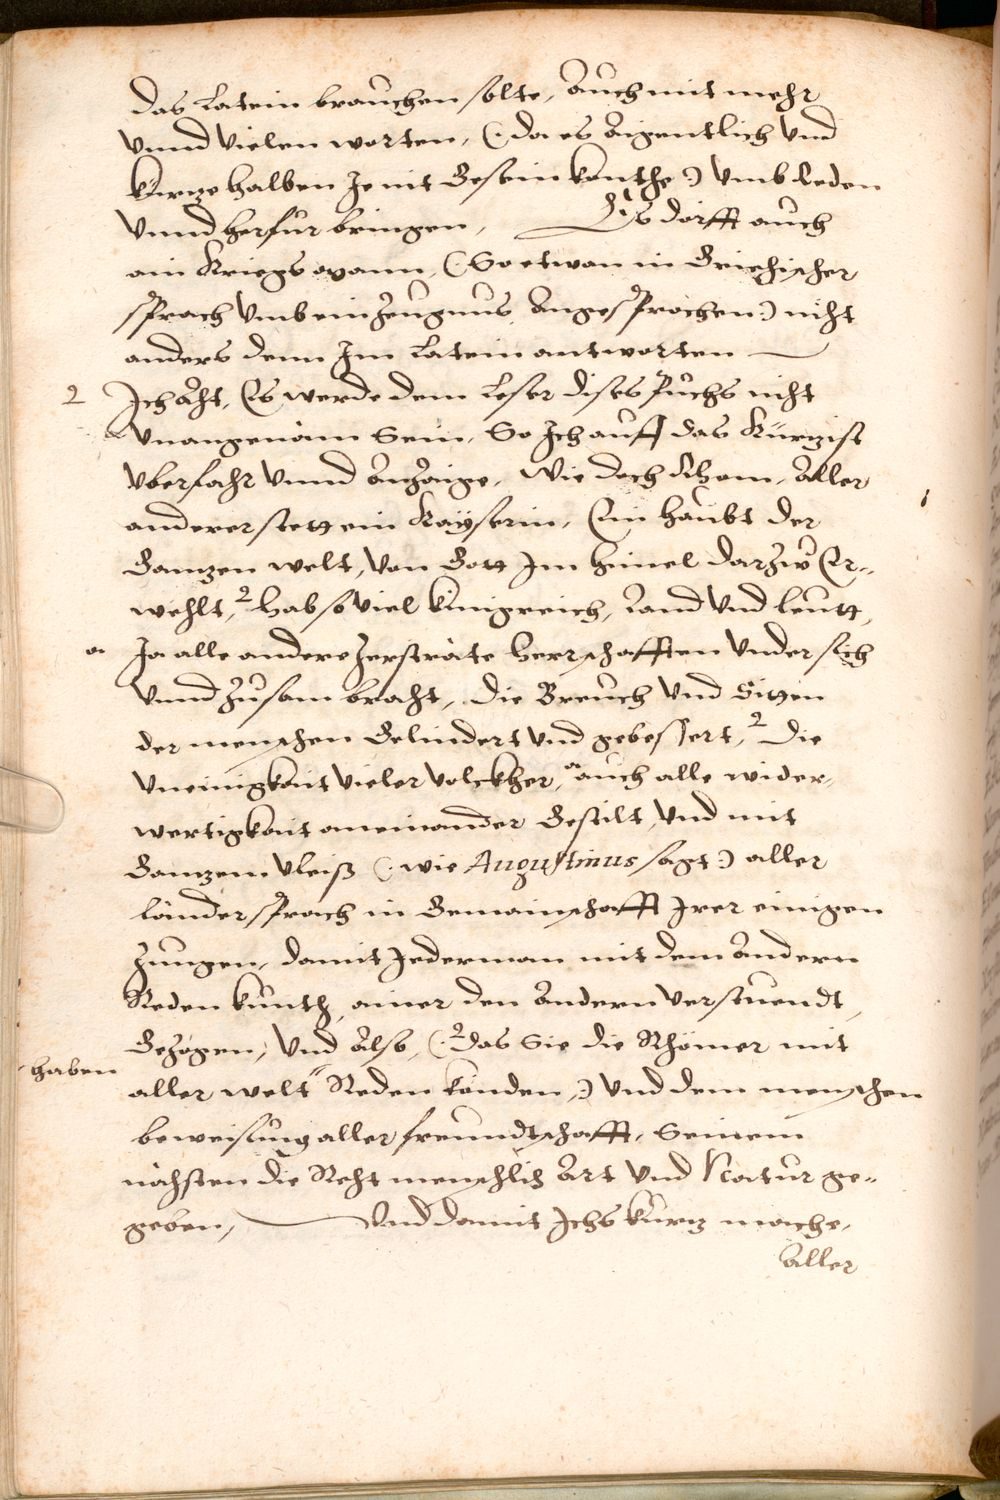 das Latein brauchen solte, Auch mit mehr
vnnd vielen worten, (: da es Aigentlich vnd
kürtze halben Je nit Gesein konthe :) vmb Reden
vnnd herfür bringen, Es dorfft auch
ain Kriegs mann, (: So etwan in Griechischer
sprach vmb ein Zeugnus Angesprochen :) nicht
anders denn Im Latein antworten
2 Ich Acht, Es werde dem Leser dises Puchs nicht
vnangenäm Sein, So Ich auff das Kürtzist
vberfahr vnnd Anzaige, Wie doch Rhom, Aller
anderer stett ein Kayserin, Ein haubt der
Gantzen welt, von Gott Im himel darzw Er-
wehlt, 2 hab so viel künigreich, Land vnd leutt,
a Ja alle andere zerströte herrschafften vnder sich
vnnd zusam bracht, Die Breuch vnd Sitten
der menschen Gelindert vnd gebessert, 2 Die
vneinigkait vieler völckher, a auch alle wider-
wertigkait aneinander Gestilt, vnd mit
Gantzem vleiß (: wie Augustinus sagt :) aller
länder sprach in Gemainschafft Irer einigen
Zungen, damit Jederman mit dem Andern
Reden kunth, ainer den Andern verstuendt,
Gezogen, vnd Also, (: 2 das Sie die Rhömer mit
haben
aller welt " Reden künden, :) vnd dem menschen
beweisung aller freundtschafft, Seinem
nächsten die Recht menschlich Art vnd Natur ge-
geben, Vnd damit Ichs kurtz mache,
Aller